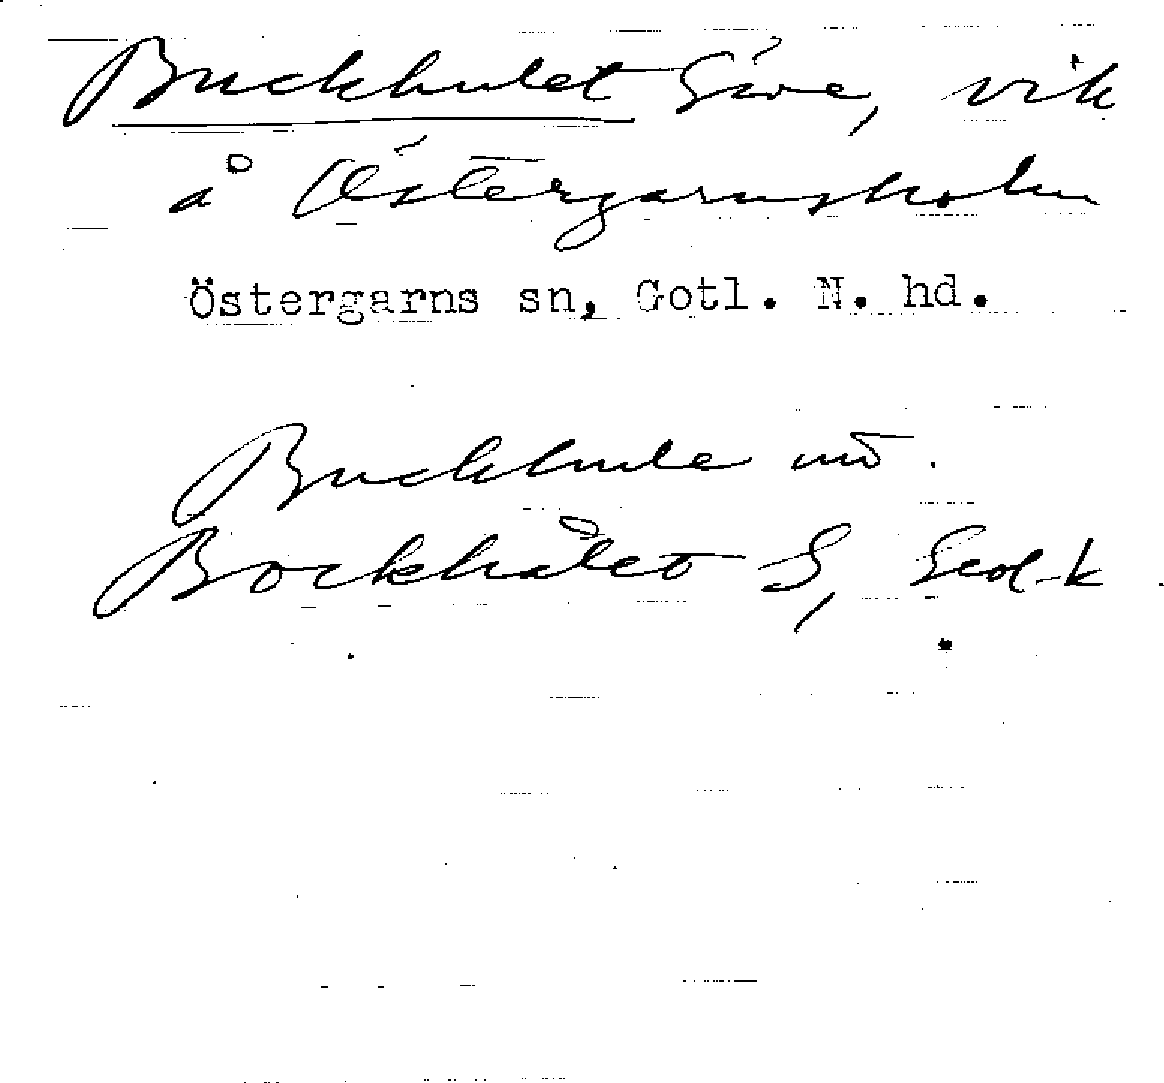 Buckhulet Säve, vik
å Östergarnsholm
Östergarns sn, Gotl. N. hd.
Buckhule
Bockhålet S, Geol. k